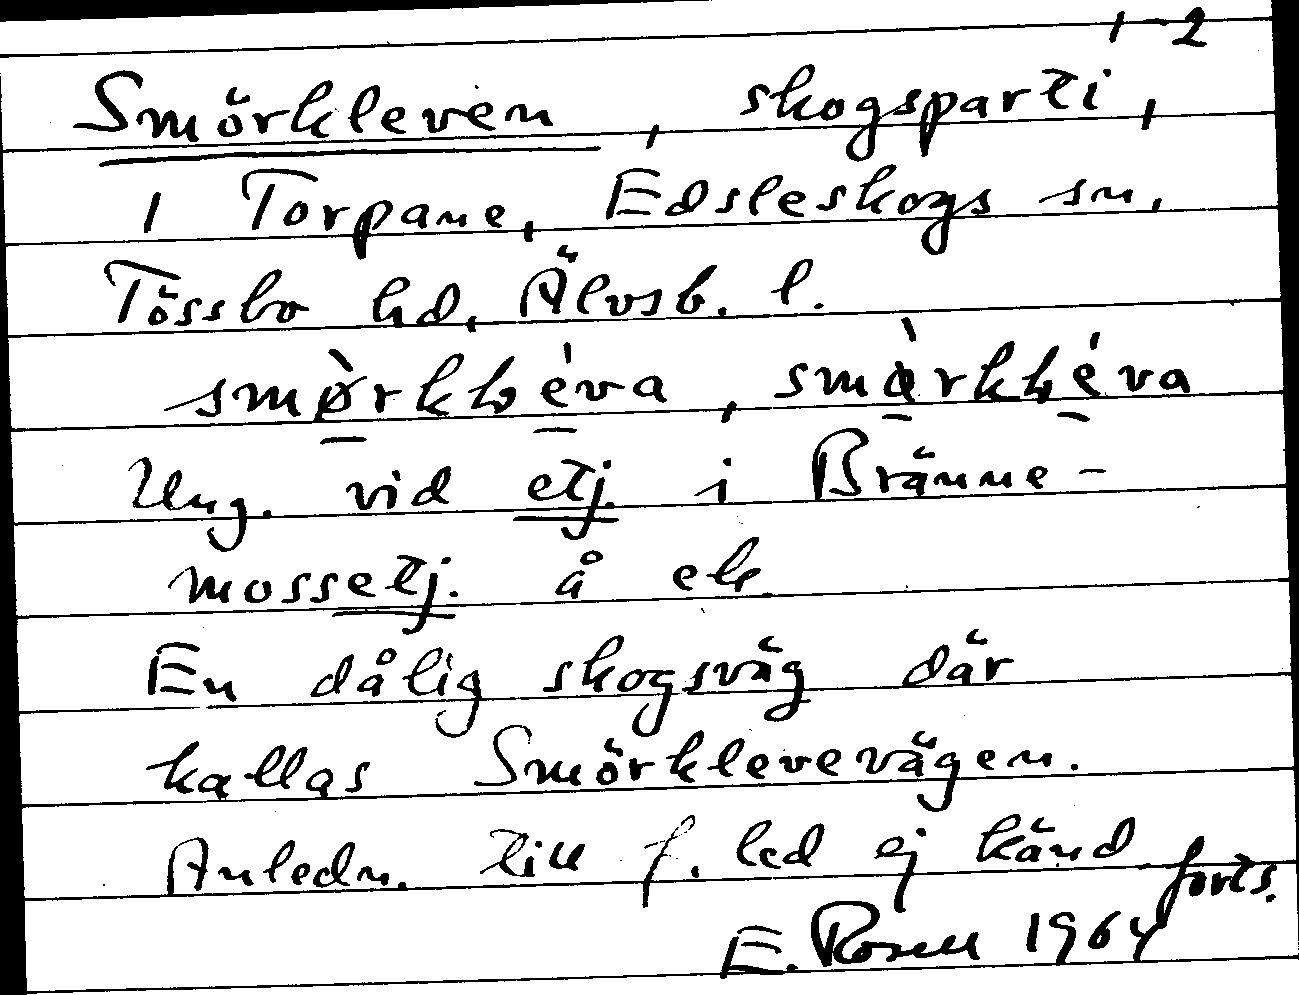 1-2
Smörkleven, skogsparti,
i Torpane, Edsleskogs sn,
Tössbo hd, Älvsb. l.
Ung. vid etj. i Bränne-
mossetj. å ek.
En dålig skogsväg där
kallas Smörklevevägen.
Anledn. till f. led ej känd
forts.
E. Rosell 1964